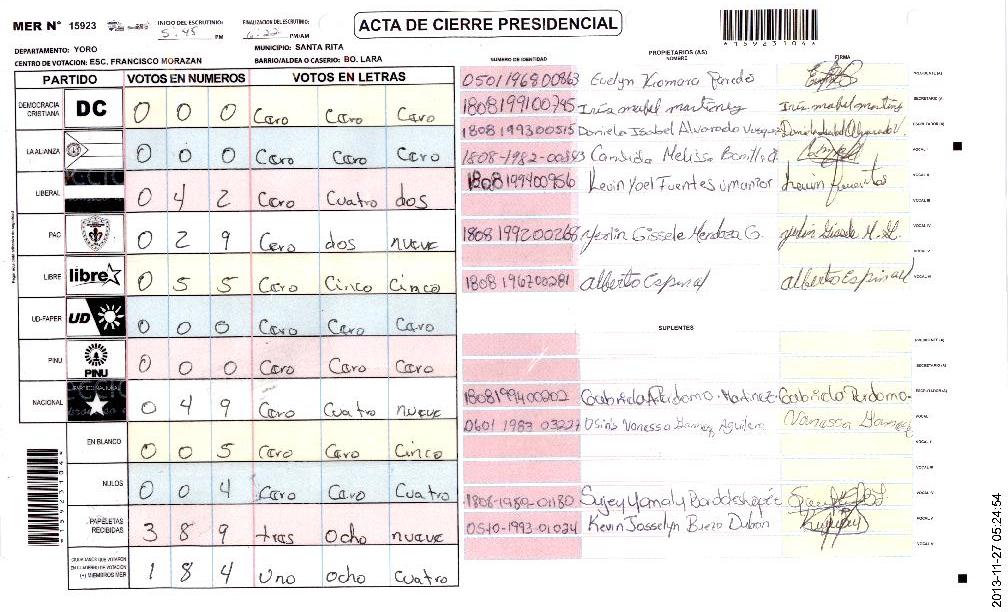 MER N° 15923
INICIO DEL ESCRUTINIO: 5:45 PM
FINALIZACION DEL ESCRUTINIO: 6:22 PM/AM
ACTA DE CIERRE PRESIDENCIAL
15923104
DEPARTAMENTO: YORO
MUNICIPIO: SANTA RITA
CENTRO DE VOTACION: ESC. FRANCISCO MORAZAN
BARRIO/ALDEA O CASERIO: BO. LARA
PARTIDO VOTOS EN NUMEROS VOTOS EN LETRAS
DEMOCRACIA CRISTIANA DC 0 0 0 Cero Cero Cero
LA ALIANZA 0 0 0 Cero Cero Cero
LIBERAL 0 4 2 Cero Cuatro dos
PAC 0 2 9 Cero dos nueve
LIBRE libre 0 5 5 Cero Cinco Cinco
UD-FAPER UD 0 0 0 Cero Cero Cero
PINU PINU 0 0 0 Cero Cero Cero
NACIONAL 0 4 9 Cero Cuatro nueve
EN BLANCO 0 0 5 Cero Cero Cinco
NULOS 0 0 4 Cero Cero Cuatro
PAPELETAS RECIBIDAS 3 8 9 tres Ocho nueve
CIUDADANOS QUE VOTARON EN CUADERNO DE VOTACION (+) MIEMBROS MER 1 8 4 Uno Ocho Cuatro
NUMERO DE IDENTIDAD PROPIETARIOS (AS) NOMBRE FIRMA
0501196800863 Evelyn Xiomara Paredes PRESIDENTE (A)
1808199100795 Iris mabel martinez Iris mabel martinez SECRETARIO (A)
1808199300515 Daniela Isabel Alvarado Vasquez ESCRUTADOR (A)
1808-1982-00383 Candida Melissa Bonilla VOCAL I
1808199400956 Kevin Yoel Fuentes umanzor Kevin fuentes VOCAL II
VOCAL III
1808199200268 Yerlin Gissele Mendoza G. Yerlin Gissele M. G. VOCAL IV
VOCAL V
1808196700281 Alberto Espinal Alberto Espinal VOCAL VI
SUPLENTES
PRESIDENTE (A)
SECRETARIO (A)
1808199400202 Gabriela Perdomo Martinez Gabriela Perdomo ESCRUTADOR (A)
0601 1987 03227 Vanessa Aguilera Vanessa VOCAL I
VOCAL II
VOCAL III
1808-1980-01180 Sujey Yamaly VOCAL IV
0510-1993-01034 Kevin Josselyn Duban VOCAL V
VOCAL VI
2013-11-27 05:24:54